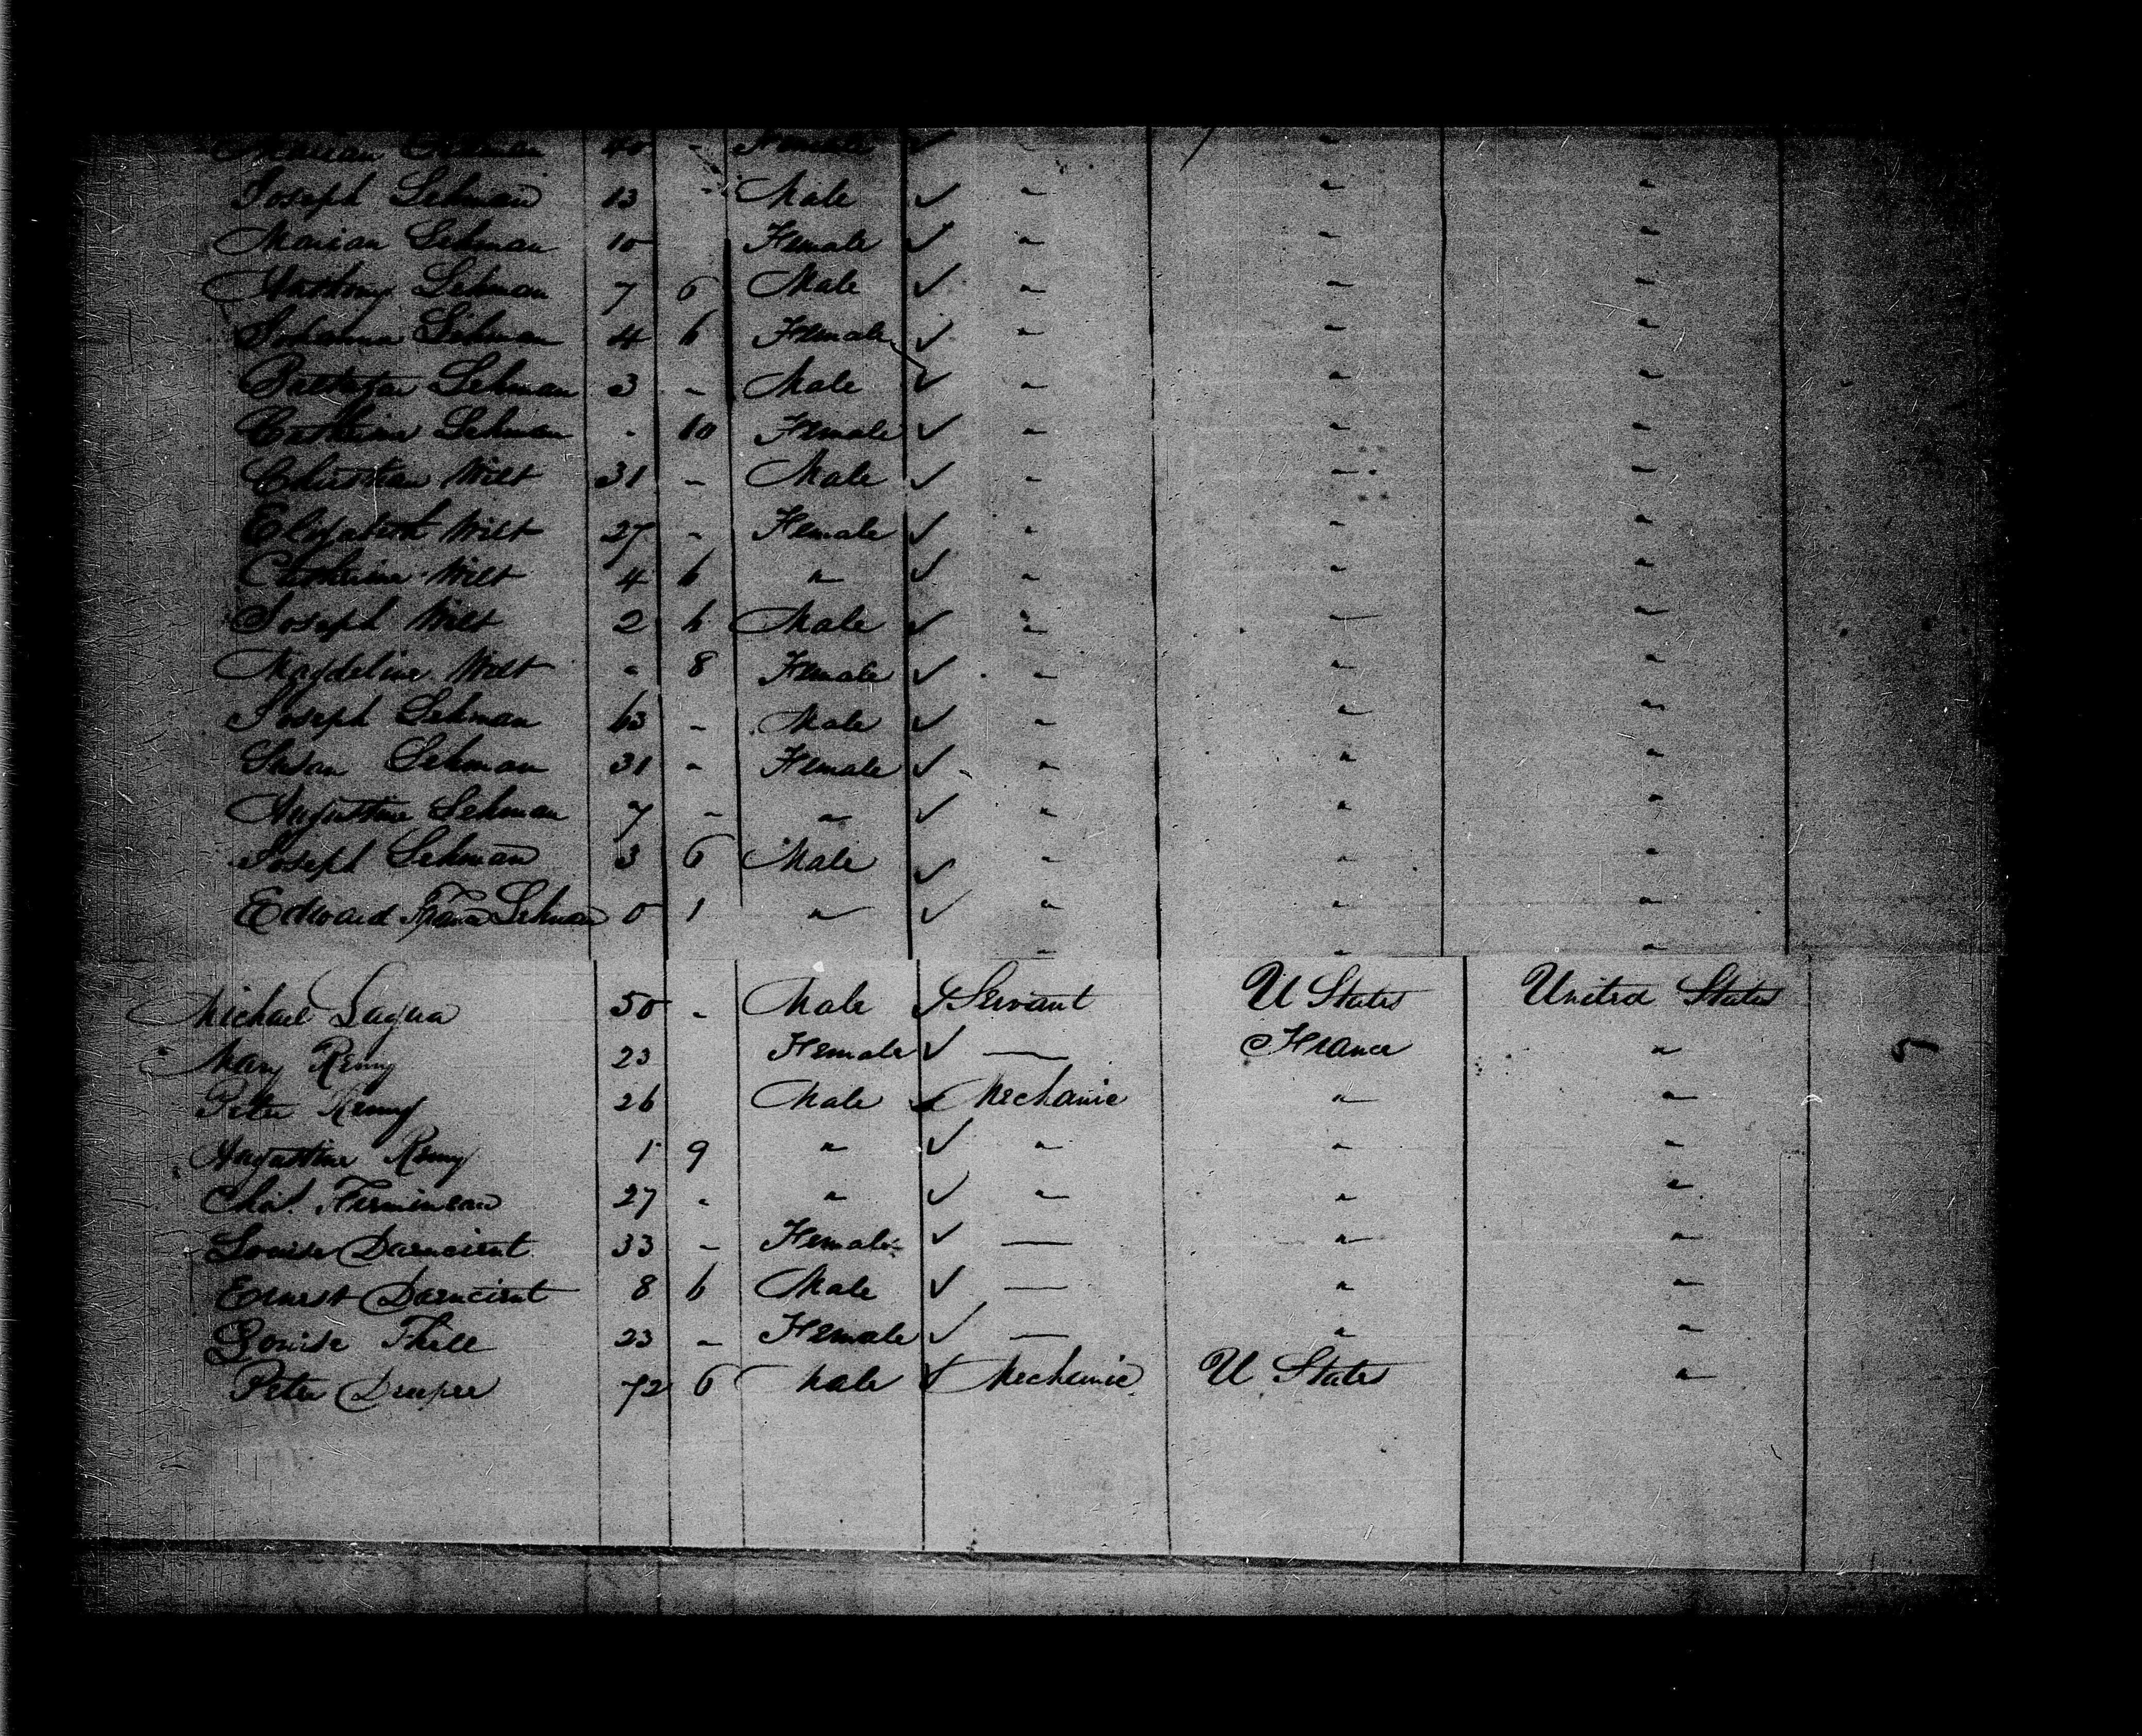 Marian Lehman 40 - Female ✓ " "
Joseph Lehman 13 - Male ✓ " " "
Marian Lehman 10 Female ✓ " " "
Anthony Lehman 7 6 Male ✓ " " "
Johanna Lehman 4 6 Female ✓ " " "
Lehman 3 - Male ✓ " " "
Cathrine Lehman - 10 Female ✓ " " "
Christian Wilt 31 - Male ✓ " " "
Elizabeth Wilt 27 - Female ✓ " " "
Cathrine Wilt 4 6 " ✓ " " "
Joseph Wilt 2 6 Male ✓ " " "
Magdeline Wilt - 8 Female ✓ " " "
Joseph Lehman 63 - Male ✓ " " "
Lehman 31 - Female ✓ " " "
Augustine Lehman 7 - " ✓ " " "
Joseph Lehman 3 6 Male ✓ " " "
Edward Lehman 0 1 " ✓ " " "
" " "
Michael Laqua 50 - Male ✓ Servant U States United States
Mary Remy 23 Female ✓ — France "
Peter Remy 26 Male ✓ Mechanic " "
Augustine Remy 1 9 " ✓ " " "
Chas. Firmineau 27 - " ✓ " " "
Louise Darncient 33 - Female ✓ — " "
Ernest Darncient 8 6 Male ✓ — " "
Louise Thill 23 - Female ✓ — " "
Peter 72 6 Male ✓ Mechanic U States "
5